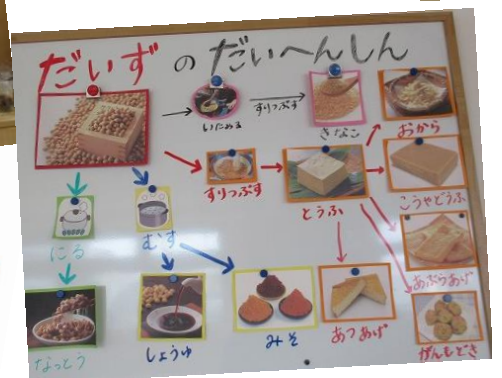 だいずのだいへんしん
いためる
すりつぶす
きなこ
おから
すりつぶす
とうふ
こうやどうふ
にる
むす
あぶらあげ
なっとう
しょうゆ
みそ
あつあげ
がんもどき